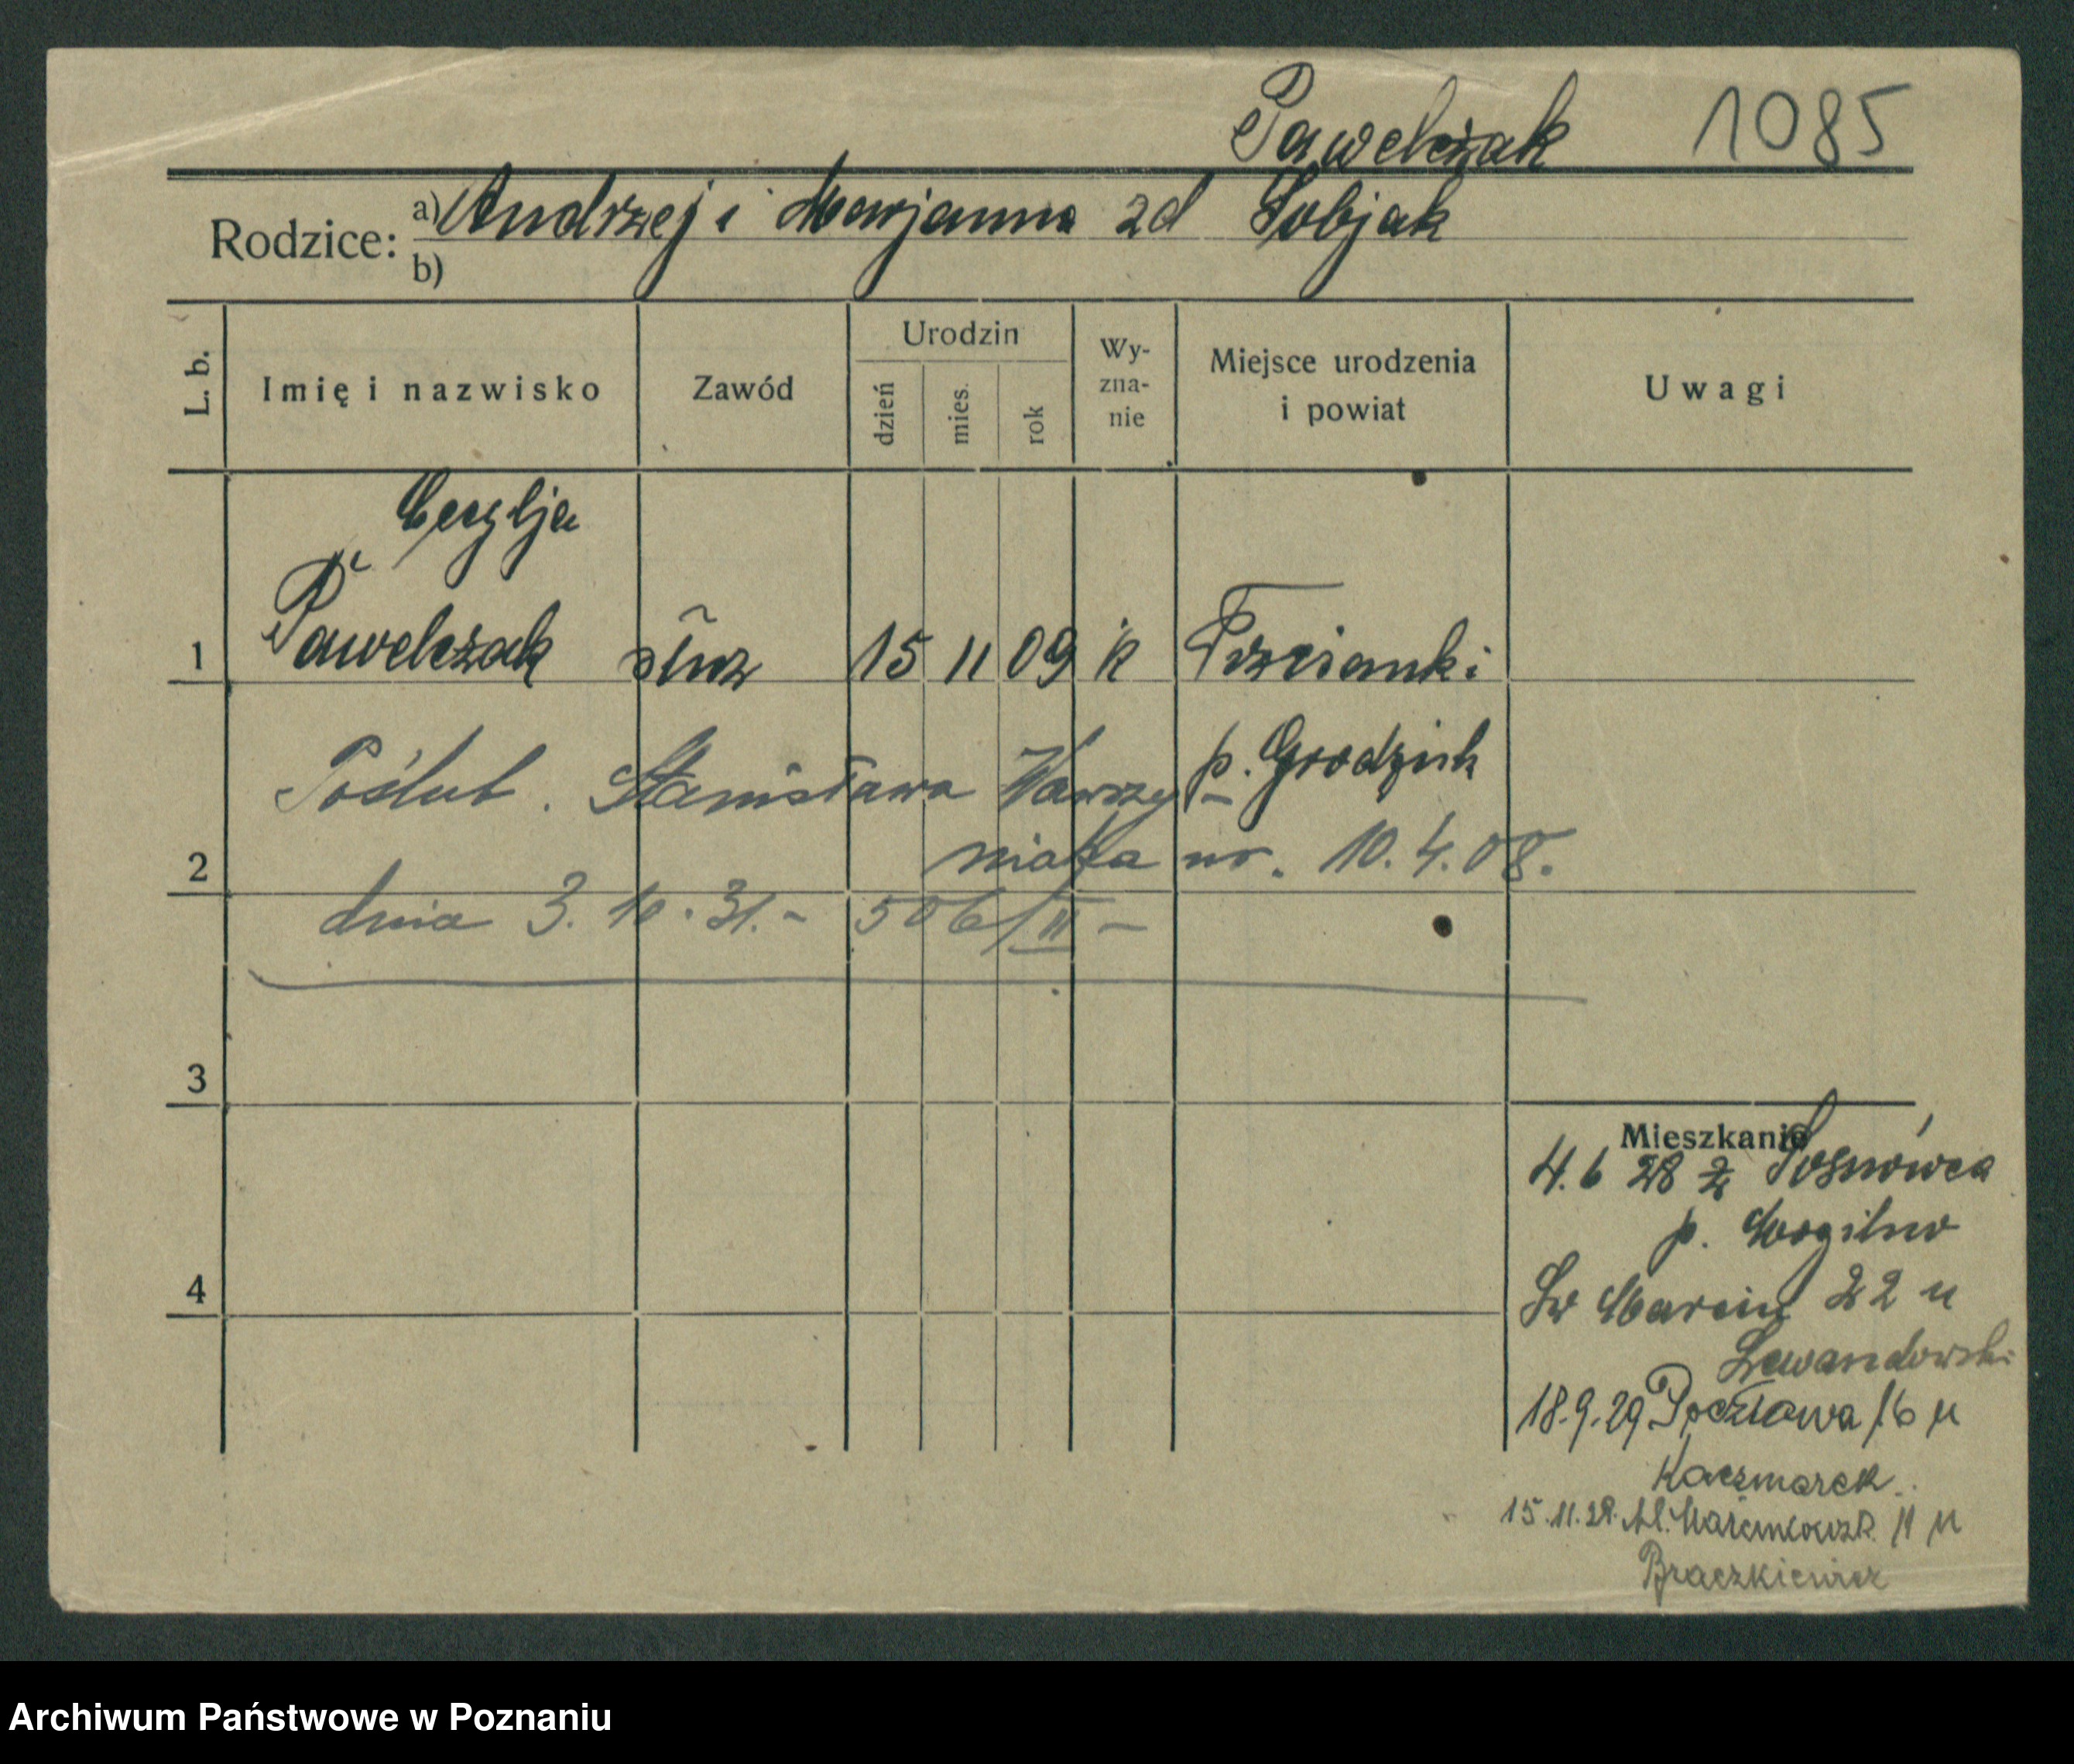 Pawelczak 1085
Rodzice: a) Andrzej i Marjanna zd Sobjak
b)
L. b. Imię i nazwisko Zawód Urodzin dzień mies. rok Wy-zna-nie Miejsce urodzenia i powiat Uwagi
Cecylja
1 Pawelczak służ 15 11 09 k Trzcianki
p. Grodzisk
Poślub. Stanisława Wawrzy-
2 niaka ur. 10.4.08.
dnia 3.10.31.- 506/III -
3
Mieszkanie
4.6 28 z Sosnówca
p. Mogilno
4
Św Marcin 22 u
Lewandowski
18.9.29 Pocztowa 16 u
Kaczmarek.
15.11.29. Al. Marcinkowsk. 11 u
Braczkiewicz
Archiwum Państwowe w Poznaniu